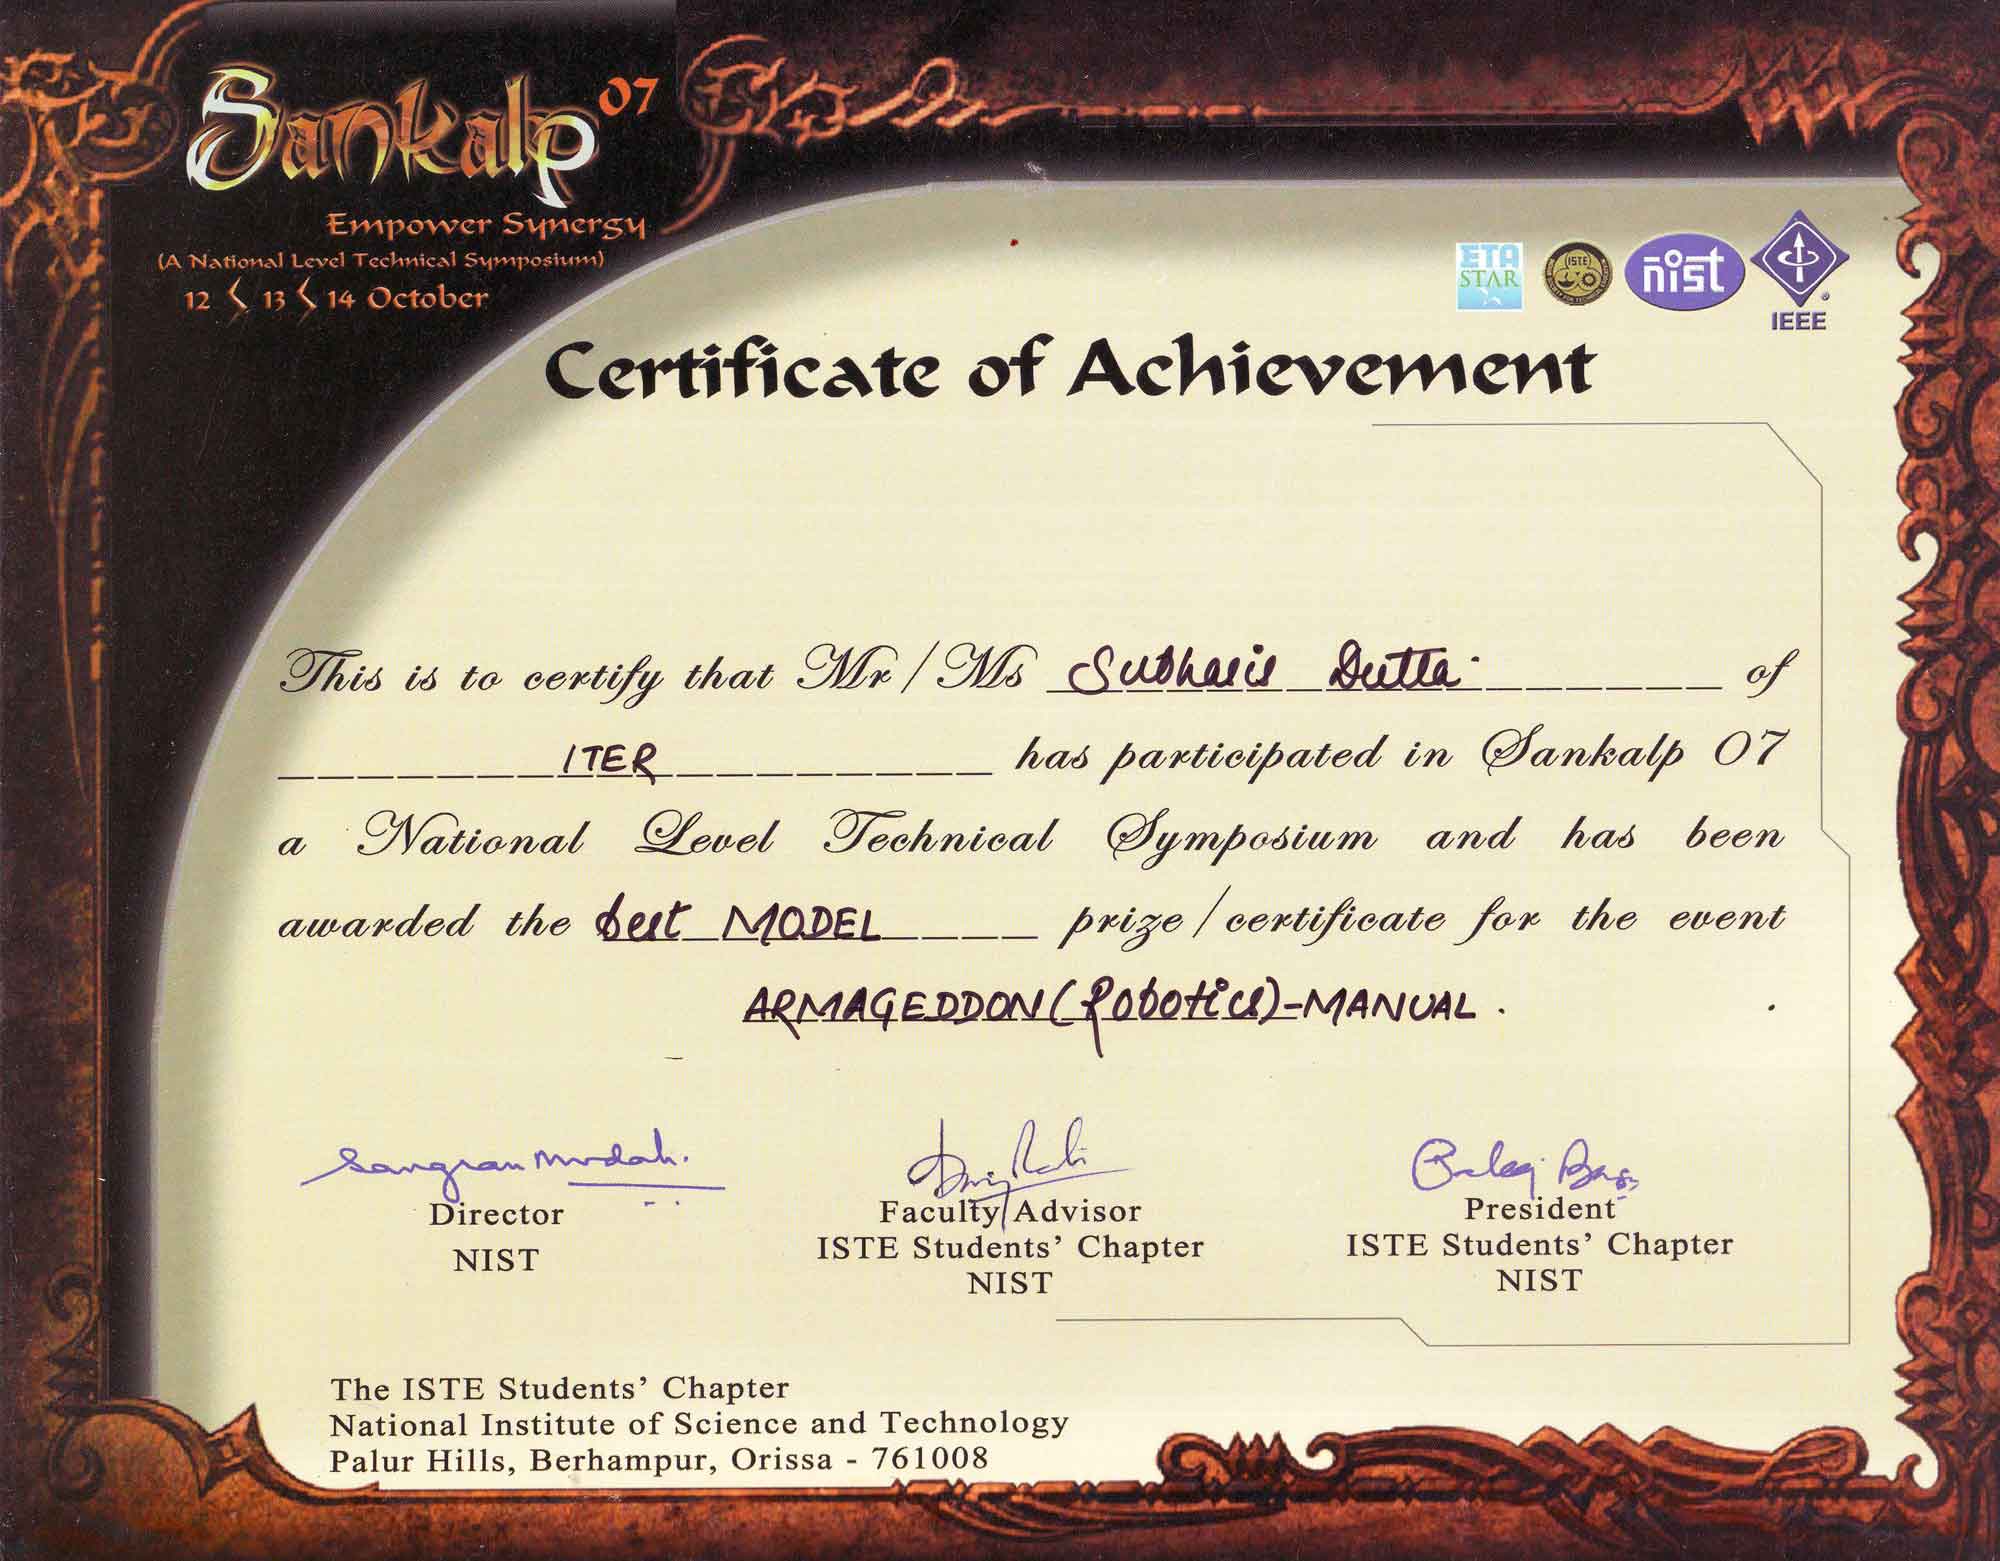 Sankalp 07
Empower Synergy
(A National Level Technical Symposium)
12 13 14 October
ETA
STAR
ISTE
nist
IEEE
Certificate of Achievement
This is to certify that Mr / Ms Subhasis Dutta. of
ITER has participated in Sankalp 07
a National Level Technical Symposium and has been
awarded the best MODEL prize / certificate for the event
ARMAGEDDON (Robotics)-MANUAL.
Director
NIST
Faculty Advisor
ISTE Students' Chapter
NIST
President
ISTE Students' Chapter
NIST
The ISTE Students' Chapter
National Institute of Science and Technology
Palur Hills, Berhampur, Orissa - 761008